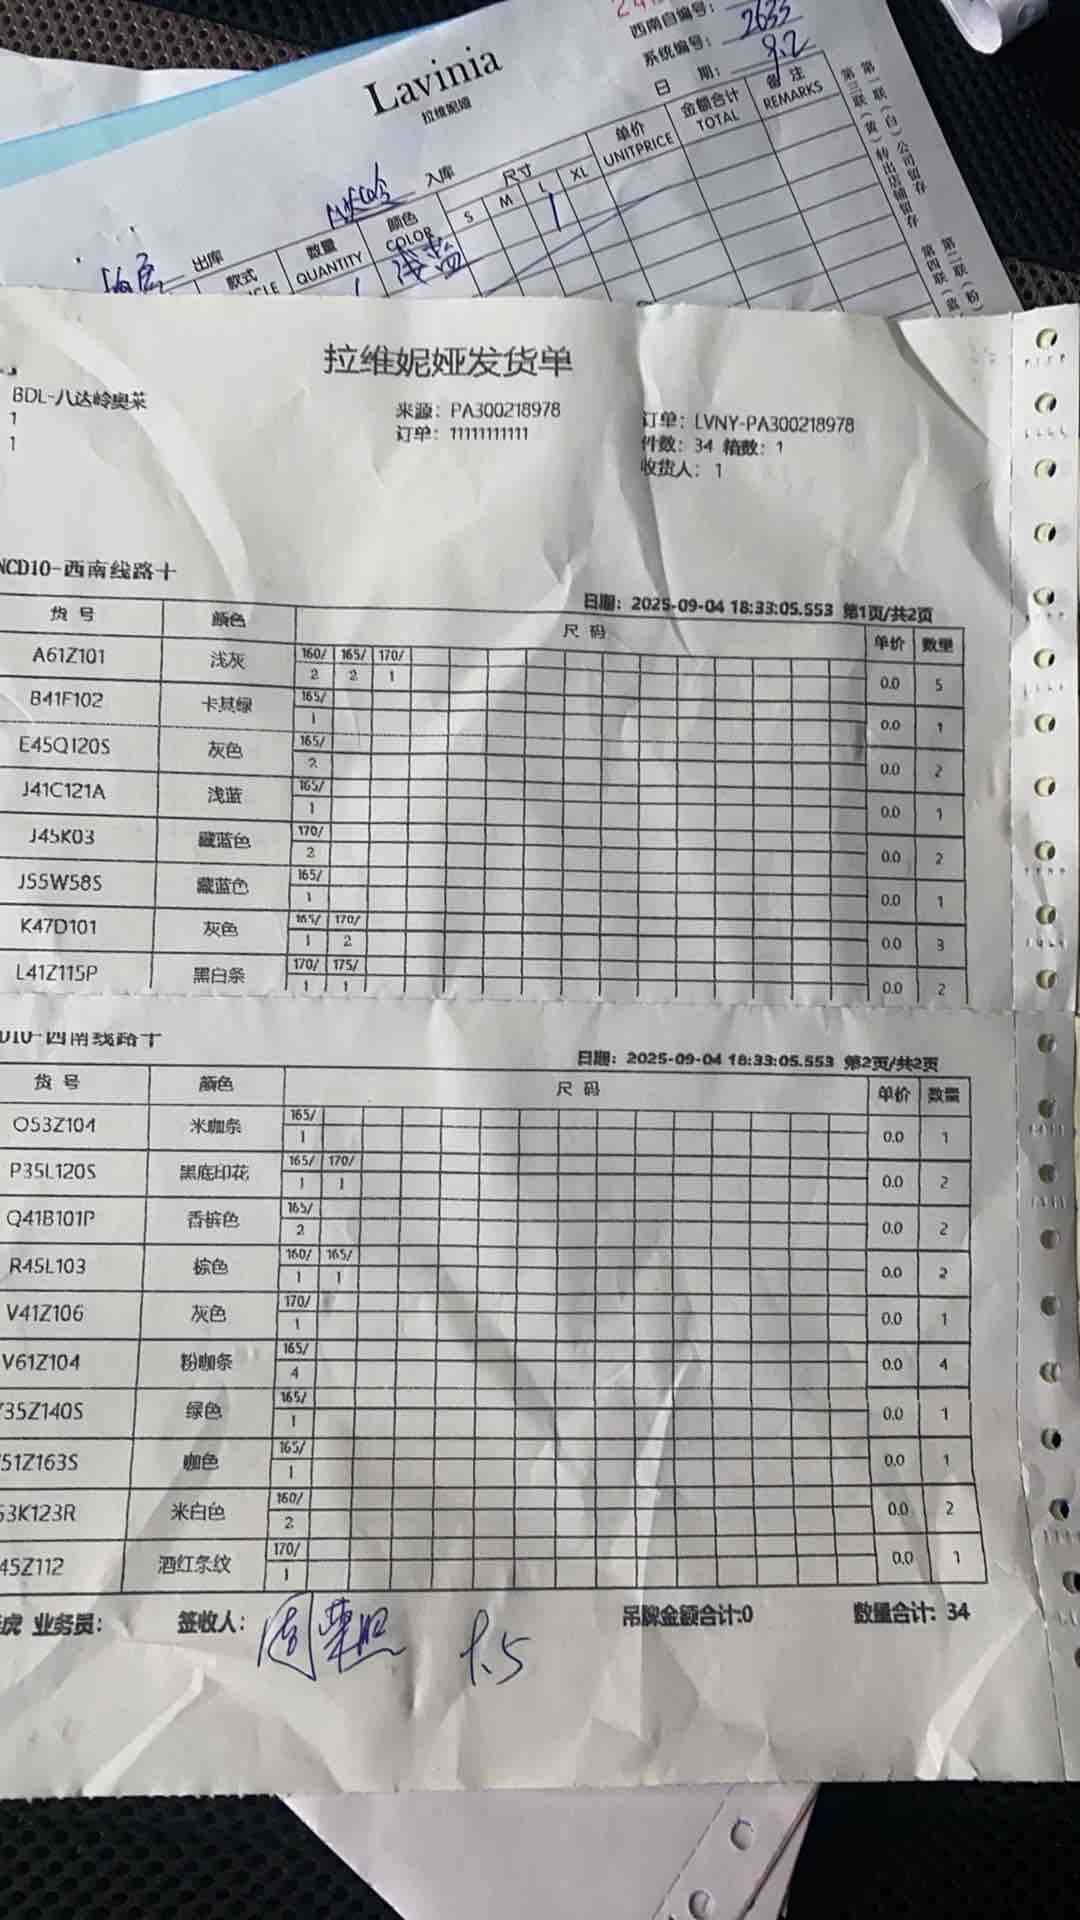 西南自编号:
系统编号: 2633
日 期: 9.2
Lavinia
拉维妮娅
出库
入库
款式
数量
QUANTITY
颜色
COLOR
尺寸
S M L XL
单价
UNITPRICE
金额合计
TOTAL
备注
REMARKS
浅蓝
1
第一联(白)公司留存
第三联(黄)转出店铺留存
第二联(粉)
第四联(蓝
拉维妮娅发货单
BDL-八达岭奥莱
1
1
来源: PA300218978
订单: 11111111111
订单: LVNY-PA300218978
件数: 34 箱数: 1
收货人: 1
NCD10-西南线路十
日期: 2025-09-04 18:33:05.553 第1页/共2页
货 号 颜色 尺 码 单价 数量
A61Z101 浅灰 160/ 165/ 170/
2 2 1 0.0 5
B41F102 卡其绿 165/
1 0.0 1
E45Q120S 灰色 165/
2 0.0 2
J41C121A 浅蓝 165/
1 0.0 1
J45K03 藏蓝色 170/
2 0.0 2
J55W58S 藏蓝色 165/
1 0.0 1
K47D101 灰色 165/ 170/
1 2 0.0 3
L41Z115P 黑白条 170/ 175/
1 1 0.0 2
D10-西南线路十
日期: 2025-09-04 18:33:05.553 第2页/共2页
货 号 颜色 尺 码 单价 数量
O53Z104 米咖条 165/
1 0.0 1
P35L120S 黑底印花 165/ 170/
1 1 0.0 2
Q41B101P 香槟色 165/
2 0.0 2
R45L103 棕色 160/ 165/
1 1 0.0 2
V41Z106 灰色 170/
1 0.0 1
V61Z104 粉咖条 165/
4 0.0 4
35Z140S 绿色 165/
1 0.0 1
51Z163S 咖色 165/
1 0.0 1
53K123R 米白色 160/
2 0.0 2
45Z112 酒红条纹 170/
1 0.0 1
虎 业务员: 签收人: 吊牌金额合计:0 数量合计: 34